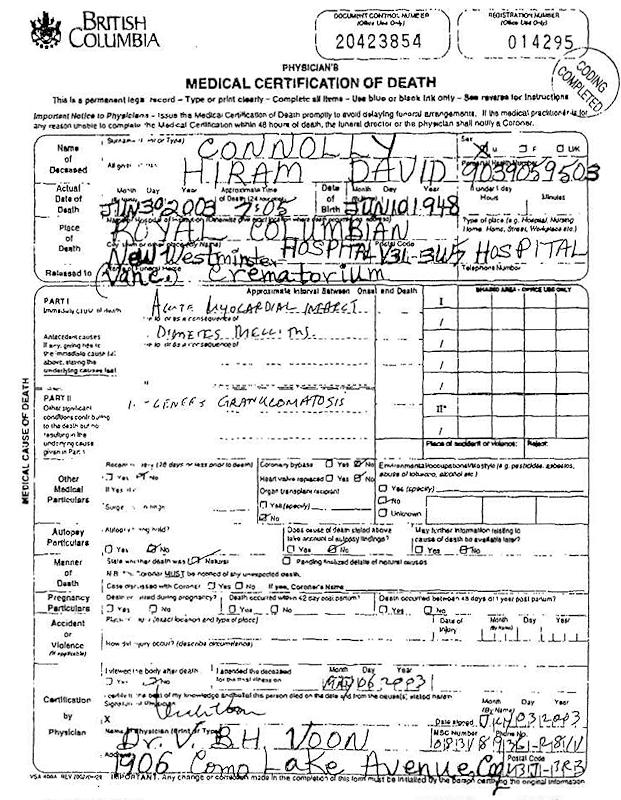 BRITISH
COLUMBIA
DOCUMENT CONTROL NUMBER
(Office Use Only)
20423854
REGISTRATION NUMBER
(Office Use Only)
014295
CODING
COMPLETED
PHYSICIAN'S
MEDICAL CERTIFICATION OF DEATH
This is a permanent legal record – Type or print clearly – Complete all items – Use blue or black ink only – See reverse for instructions
Important Notice to Physicians – Issue the Medical Certification of Death promptly to avoid delaying funeral arrangements. If the medical practitioner is for
any reason unable to complete the Medical Certification within 48 hours of death, the funeral director or the physician shall notify a Coroner.
Name of Deceased
CONNOLLY
Sex
F
UK
HIRAM DAVID
9039059503
Actual Date of Death
Month Day Year
Approximate Time
JUN 30 2003
Date of Birth
Month Day Year
JUN 10 1948
If under 1 day
Hours
Minutes
Place of Death
ROYAL COLUMBIAN
Type of place (e.g. Hospital, Nursing
Home, Home, Street, Workplace etc.)
New Westminster
HOSPITAL
V3L-3W7
HOSPITAL
Postal Code
Released to
(Vanc.) Crematorium
Telephone Number
MEDICAL CAUSE OF DEATH
Approximate Interval Between Onset and Death
SHADED AREA - OFFICE USE ONLY
PART I
Immediate cause of death
ACUTE MYOCARDIAL INFARCT
Antecedent causes
If any, giving rise to
the immediate cause (a)
above, stating the
underlying causes last
DIABETES MELLITUS
PART II
Other significant
conditions contributing
to the death but not
resulting in the
underlying cause
given in Part I
GRANULOMATOSIS
I
II
Place of accident or violence:
Reject:
Other Medical Particulars
(28 days or less prior to death)
Yes
No
Coronary bypass Yes No
Heart valve replaced Yes No
Organ transplant recipient
Yes (specify)
No
Environmental/occupational/lifestyle (e.g. pesticides, asbestos,
abuse of tobacco, alcohol etc.)
Yes (specify)
No
Unknown
Autopsy Particulars
Yes No
Does cause of death stated above
take account of autopsy findings?
Yes No
May further information relating to
cause of death be available later?
Yes No
Manner of Death
State whether death was Natural
Pending finalized details of natural causes
N.B. The Coroner MUST be notified of any unexpected death.
Case discussed with Coroner Yes No If yes, Coroner's Name
Pregnancy Particulars
Death occurred during pregnancy?
Yes No
Death occurred within 42 day post partum?
Yes No
Death occurred between 43 days of 1 year post partum?
Yes No
Accident or Violence
(If applicable)
(exact location and type of place)
Date of Injury
Month (By Name) Day Year
How did injury occur? (describe circumstance)
Certification by Physician
I viewed the body after death
Yes
I attended the deceased
for the final illness on
Month Day Year
I certify to the best of my knowledge and belief this person died on the date and from the cause(s) stated herein
X
Month (By Name) Day Year
Date signed
03 2003
Dr. V. B.H. VOON
MSC Number
Phone No.
1906 Como Lake Avenue, Coq
Postal Code
VSA 406A REV 2002/04/29
IMPORTANT: Any change or correction made in the completion of this form must be initialled by the person certifying the original information